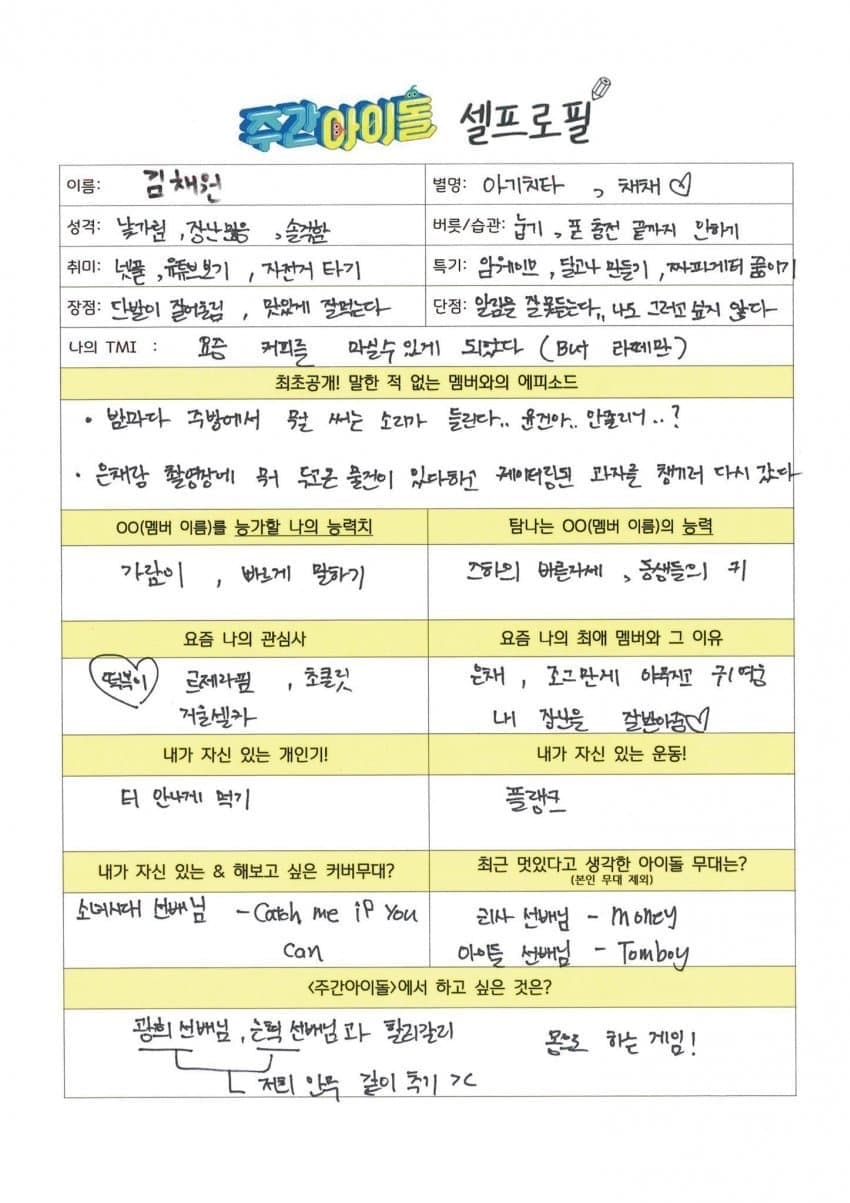 주간아이돌 셀프로필
이름: 김채원 별명: 아기치타, 채채♡
성격: 낯가림, 장난많음, 솔직함 버릇/습관: 눕기, 폰 충전 끝까지 안하기
취미: 넷플, 유튜브보기, 자전거 타기 특기: 암웨이브, 달고나 만들기, 짜파게티 끓이기
장점: 단발이 잘어울림, 맛있게 잘먹는다 단점: 알람을 잘 못듣는다,, 나도 그러고 싶지 않다
나의 TMI : 요즘 커피를 마실수있게 되었다 (But 라떼만)
최초공개! 말한 적 없는 멤버와의 에피소드
• 밤마다 주방에서 뭘 써는 소리가 들린다.. 윤진아.. 안졸리니..?
• 은채랑 촬영장에 뭐 두고온 물건이 있다하고 케이터링된 과자를 챙기러 다시 갔다
OO(멤버 이름)를 능가할 나의 능력치
가람이, 빠르게 말하기
탐나는 OO(멤버 이름)의 능력
즈하의 바른자세, 동생들의 키
요즘 나의 관심사
떡볶이 르세라핌, 초콜릿
거울셀카
요즘 나의 최애 멤버와 그 이유
은채, 조그만게 야무지고 귀여움
내 장난을 잘받아줌♡
내가 자신 있는 개인기!
티 안나게 먹기
내가 자신 있는 운동!
플랭크
내가 자신 있는 & 해보고 싶은 커버무대?
소녀시대 선배님 - Catch me if you
can
최근 멋있다고 생각한 아이돌 무대는?
(본인 무대 제외)
리사 선배님 - Money
아이들 선배님 - Tomboy
<주간아이돌>에서 하고 싶은 것은?
광희 선배님, 은혁 선배님과 릴리갈리
저희 안무 같이 추기 ><
몸으로 하는 게임!